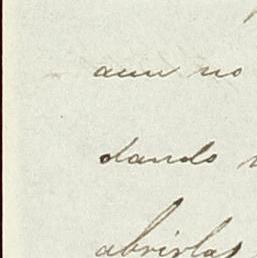 aun no
dando
abrirlas